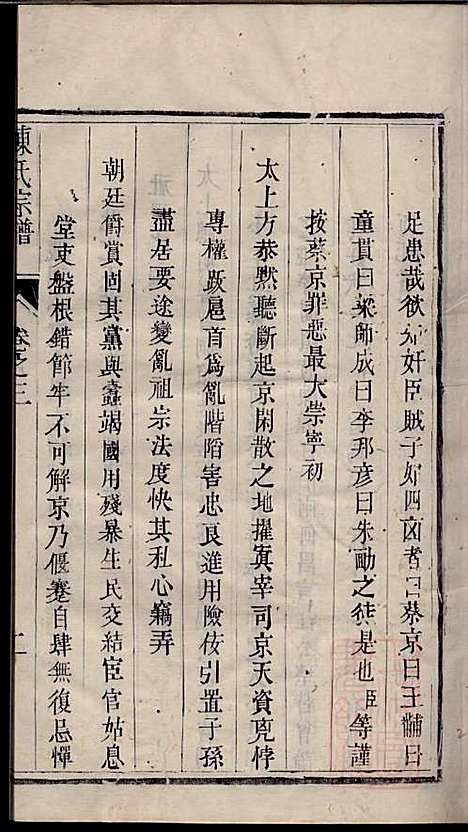 足患哉欲知奸臣賊子如四凶者曰蔡京曰王黼曰
童貫曰梁師成曰李邦彦曰朱勔之徒是也臣等謹
按蔡京罪惡最大崇寧初
太上方恭黙聽斷起京閑散之地擢寘宰司京天資兇悖
專權跋扈首為亂階陷害忠良進用險佞引置子孫
盡居要途變亂祖宗法度快其私心竊弄
朝廷爵賞固其黨與蠹竭國用殘暴生民交結宦官姑息
堂吏盤根錯節牢不可解京乃偃蹇自肆無復忌憚
陳氏宗譜
卷之三